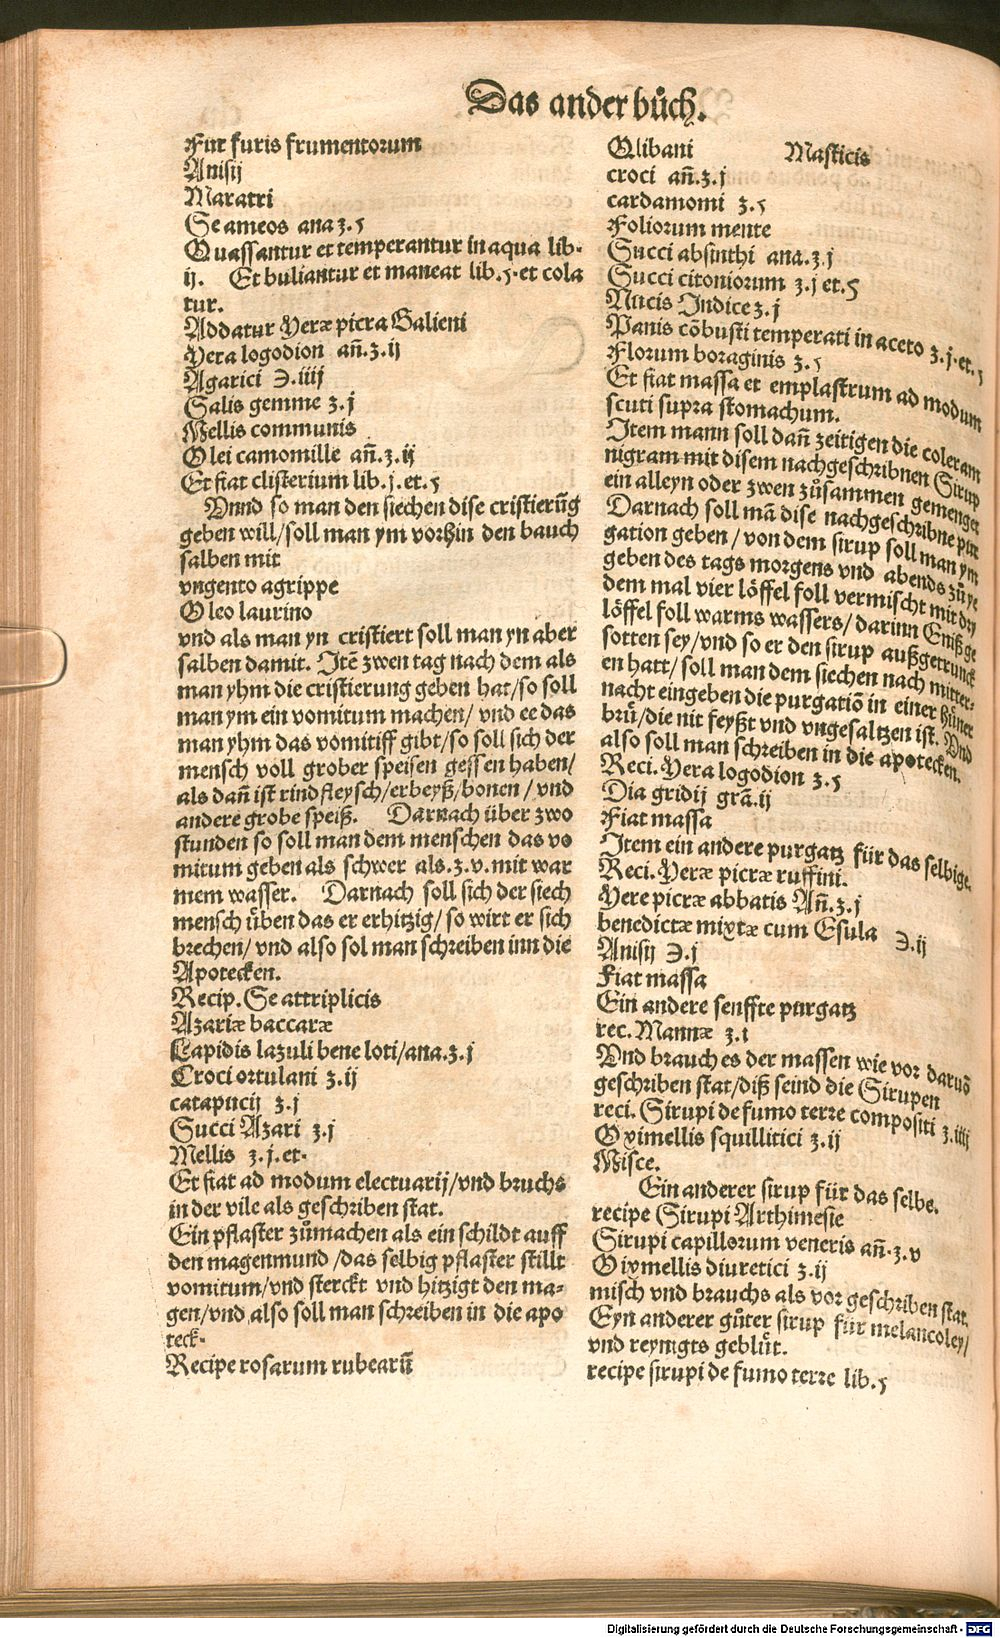 Das ander bůch.
Fur furis frumentorum
Anisij
Maratri
Se ameos ana ʒ.5
Quassantur et temperantur in aqua lib.
ij. Et buliantur et maneat lib.5.et cola
tur.
Addatur Yeræ picra Galieni
Yera logodion añ.ʒ.ij
Agarici ℈.iiij
Salis gemme ʒ.j
Mellis communis
Olei camomille añ.ʒ.ij
Et fiat clisterium lib.j.et.5
Vnnd so man den siechen dise cristierūg
geben will/soll man ym vorhin den bauch
salben mit
vngento agrippe
Oleo laurino
vnd als man yn cristiert soll man yn aber
salben damit. Itē zwen tag nach dem als
man yhm die cristierung geben hat/so soll
man ym ein vomitum machen/ vnd ee das
man yhm das vomitiff gibt/so soll sich der
mensch voll grober speisen gessen haben/
als dañ ist rindfleysch/erbeyß/bonen/vnd
andere grobe speiß. Darnach über zwo
stunden so soll man dem menschen das vo
mitum geben als schwer als.ʒ.v.mit war
mem wasser. Darnach soll sich der siech
mensch üben das er erhitzig/so wirt er sich
brechen/ vnd also sol man schreiben inn die
Apotecken.
Recip. Se attriplicis
Azariæ baccaræ
Lapidis lazuli bene loti/ana.ʒ.j
Croci ortulani ʒ.ij
catapucij ʒ.j
Succi Azari ʒ.j
Mellis ʒ.j.et.
Et fiat ad modum electuarij/vnd bruchs
in der vile als geschriben stat.
Ein pflaster zůmachen als ein schildt auff
den magenmund/das selbig pflaster stillt
vomitum/vnd sterckt vnd hitzigt den ma-
gen/vnd also soll man schreiben in die apo
teck.
Recipe rosarum rubearū
Olibani Masticis
croci añ.ʒ.j
cardamomi ʒ.5
Foliorum mente
Succi absinthi ana.ʒ.j
Succi citoniorum ʒ.j et.5
Nucis Indice ʒ.j
Panis cōbusti temperati in aceto ʒ.j.et.5
Florum boraginis ʒ.5
Et fiat massa et emplastrum ad modum
scuti supra stomachum.
Item mann soll dañ zeitigen die coleram
nigram mit disem nachgeschribnen Sirup
ein alleyn oder zwen zůsammen gemenget
Darnach soll mā dise nachgeschribne pur
gation geben/von dem sirup soll man ym
geben des tags morgens vnd abends zů ye
dem mal vier löffel foll vermischt mit dry
löffel foll warms wassers/darinn Eniß ge
sotten sey/vnd so er den sirup außgetrunck
en hatt/soll man dem siechen nach mitter-
nacht eingeben die purgatiō in einer hüner
brü/die nit feyßt vnd vngesaltzen ist. Vnd
also soll man schreiben in die apotecken.
Reci. Yera logodion ʒ.5
Dia gridij grā.ij
Fiat massa
Item ein andere purgatz für das selbige.
Reci. Yeræ picræ ruffini.
Yere picræ abbatis Añ.ʒ.j
benedictæ mixtæ cum Esula ℈.ij
Anisij ℈.j
Fiat massa
Ein andere senffte purgatz
rec. Mannæ ʒ.i
Vnd brauch es der massen wie vor daruō
geschriben stat/diß seind die Sirupen
reci. Sirupi de fumo terre compositi ʒ.iiij
Oximellis squillitici ʒ.ij
Misce.
Ein anderer sirup für das selbe.
recipe Sirupi Arthimesie
Sirupi capillorum veneris añ.ʒ.v
Oixmellis diuretici ʒ.ij
misch vnd brauchs als vor geschriben stat.
Eyn anderer gůter sirup für melancoley/
vnd reynigts geblüt.
recipe sirupi de fumo terre lib.5
Digitalisierung gefördert durch die Deutsche Forschungsgemeinschaft - DFG